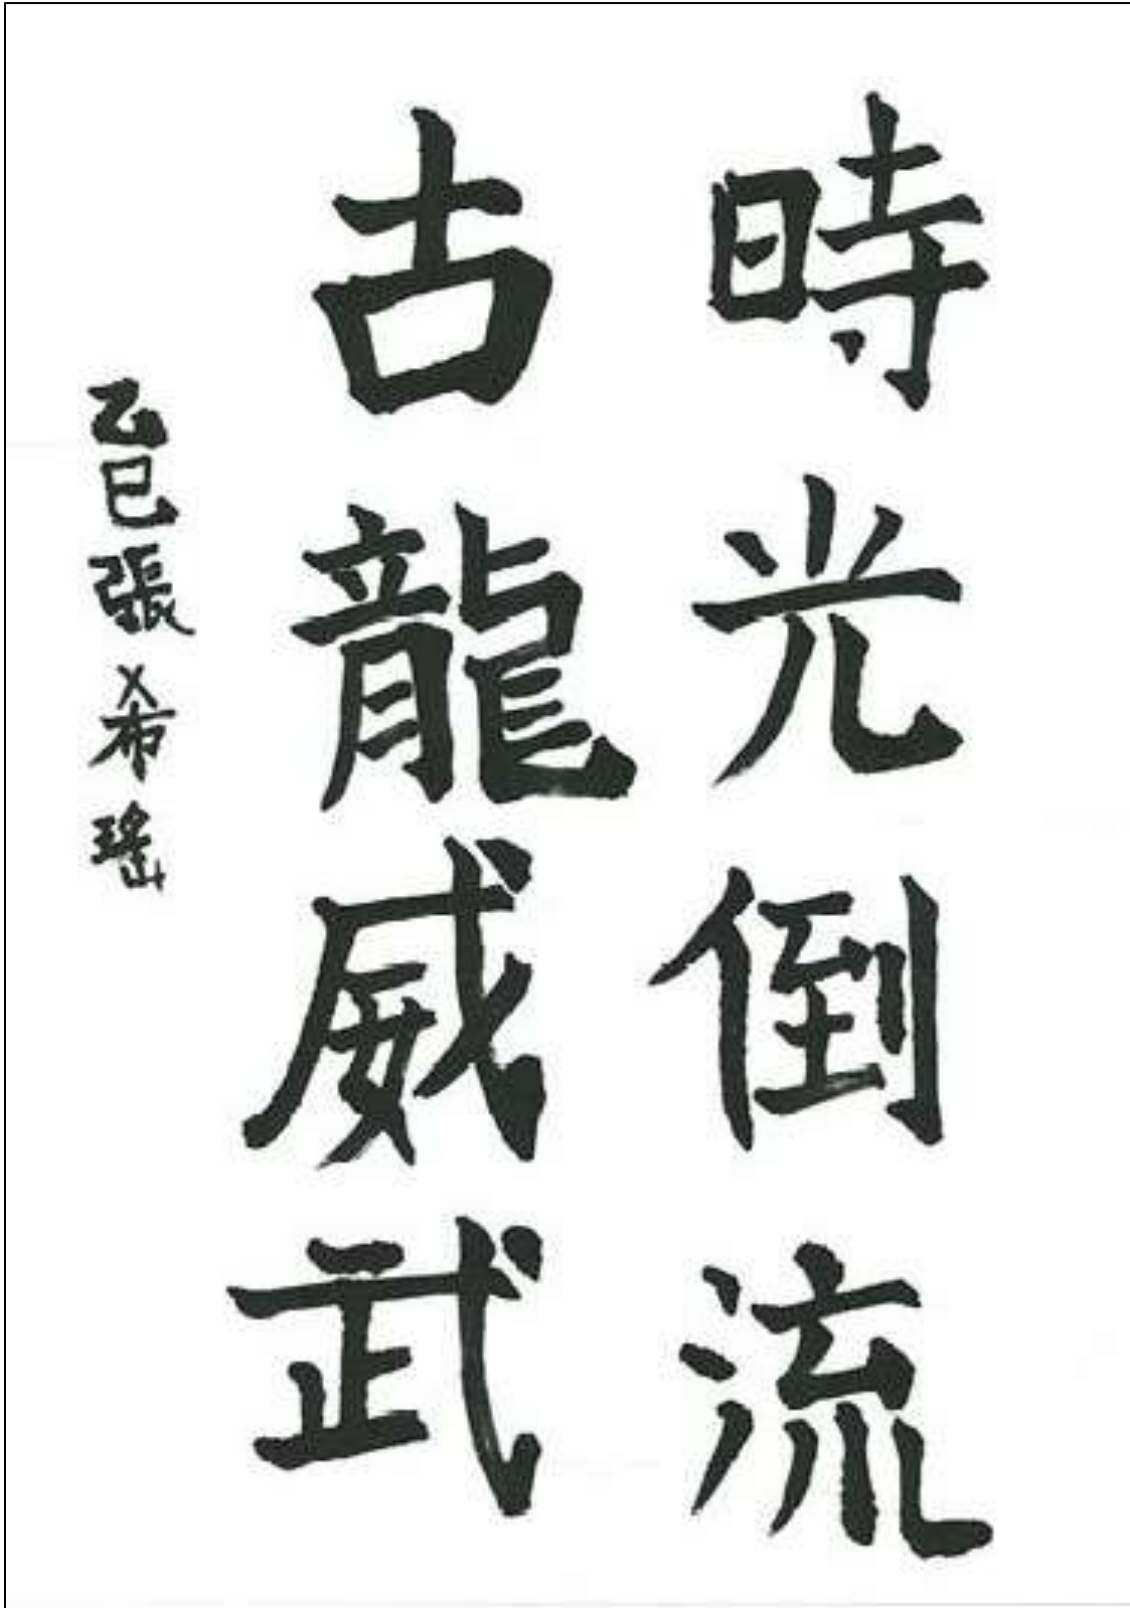 時光倒流
古龍威武
乙巳張希瑤